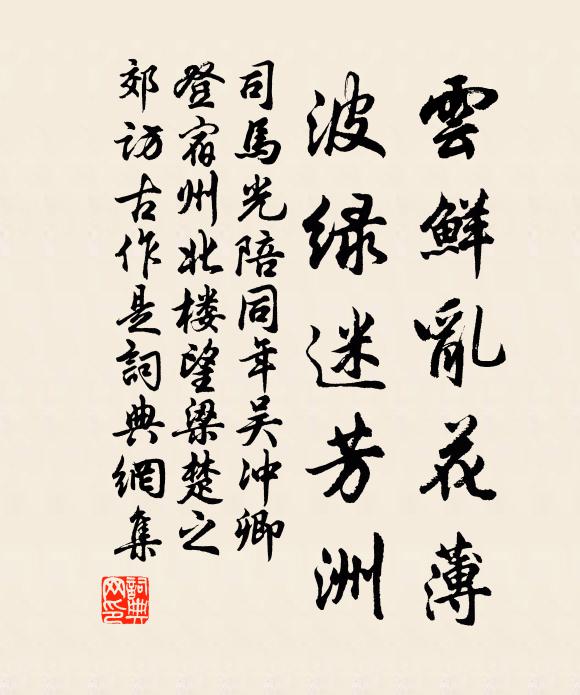 雲鮮亂花薄
波緑迷芳洲
司馬光陪同年吴冲卿
登宿州北楼望梁楚之
郊訪古作是詞典網集
詞典网印